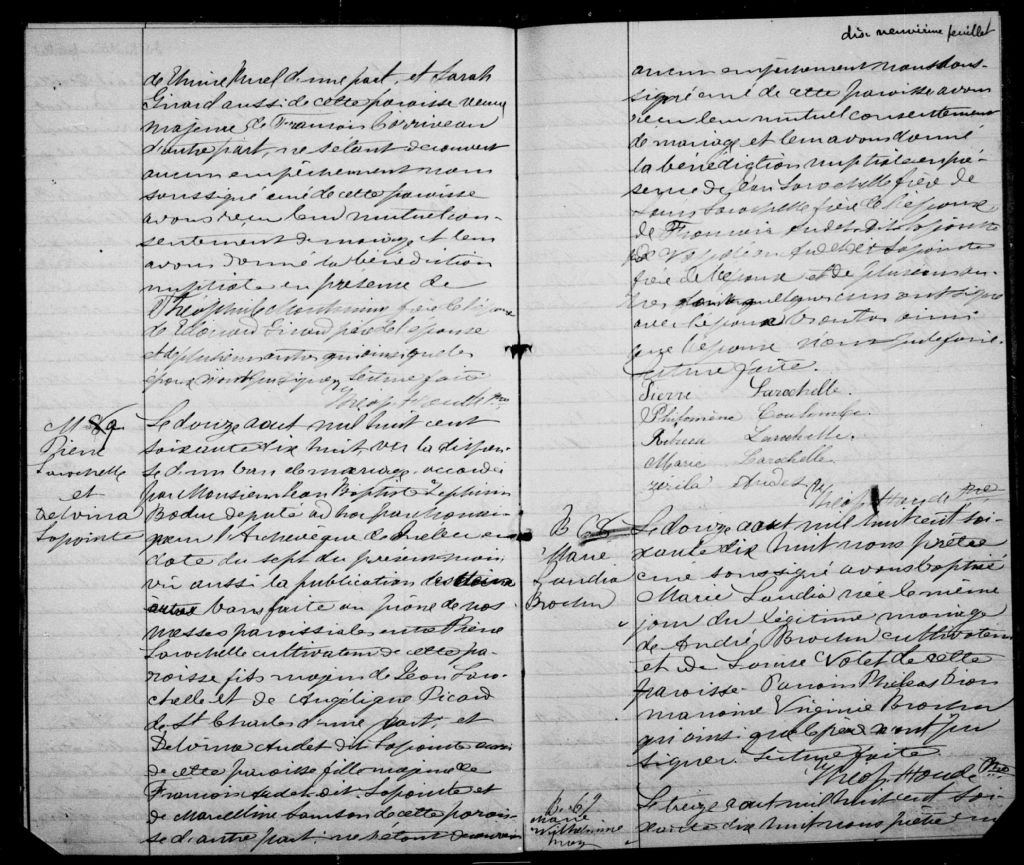 de d'une part, et Sarah
Girard aussi de cette paroisse veuve
majeure de Francois Corriveau
d'autre part, ne s'étant découvert
aucun empêchement nous
soussigné curé de cette paroisse
avons reçu leur mutuel con-
sentement de mariage et leur
avons donné la bénédiction
nuptiale en présence de
Théophile frère de l'époux
de Edouard Girard père de l'épouse
et plusieurs autres qui ainsi que les
époux n'ont pu signer. Lecture faite
Theop. Houde Ptre
M 89
Pierre
Larochelle
et
Delvina
Lapointe
Le douze aout mil huit cent
soixante dix huit vu la dispen-
se d'un ban de mariage accordée
par Monsieur Jean Baptiste Zephirin
Bolduc député ad hoc par Monsei-
gneur l'Archevêque de Québec en
date du sept du présent mois
vu aussi la publication des deux
autres bans faite au prône de nos
messes paroissiales entre Pierre
Larochelle cultivateur de cette pa-
roisse fils majeur de Jean Laro-
chelle et de Angélique Picard
de St Charles d'une part, et
Delvina Audet dit Lapointe aussi
de cette paroisse fille majeure de
Francois Audet dit Lapointe et
de Marcelline Samson de cette parois-
se d'autre part; ne s'étant découvert
dix neuvième feuillet
aucun empêchement nous sous-
signé curé de cette paroisse avons
reçu leur mutuel consentement
de mariage et leur avons donné
la bénédiction nuptiale en pré-
sence de Jean Larochelle frère de
Louis Larochelle frère de l'époux
de Francois Audet dit Lapointe
de Napoléon Audet dit Lapointe
frère de l'épouse et de plusieurs au-
tres dont quelques uns ont signé
avec l'époux ainsi
que l'épouse
Lecture faite.
Pierre Larochelle.
Philomène Coulombe.
Rébecca Larochelle.
Marie Larochelle
Zerila Audet
Theop. Houde Ptre
B 68
Marie
Landia
Brochu
Le douze aout mil huit cent soi-
xante dix huit nous prêtre
curé soussigné avons baptisé
Marie Landia née le même
jour du légitime mariage
de André Brochu cultivateur
et de Louise Volet de cette
paroisse. Parrain Phileas Dion
marraine Virginie Brochu
qui ainsi que le père n'ont pu
signer. Lecture faite
Theop. Houde Ptre
B. 69
Marie
Wilhelmine
Le treize aout mil huit cent soi-
xante dix huit nous prêtre cu